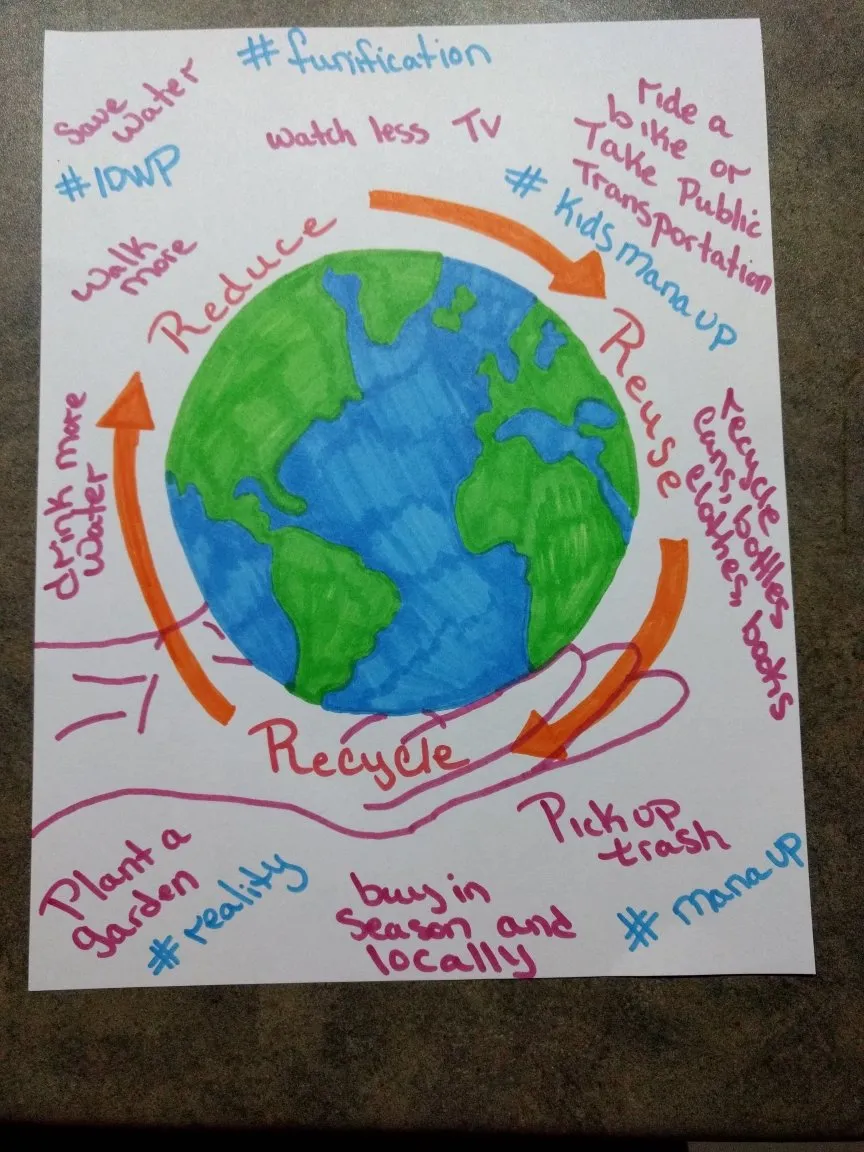 # funification
Save
water
watch less TV
ride a
bike or
Take Public
Transportation
#IOWP
# Kidsmanaup
walk
more
Reduce
Reuse
drink more
water
recycle
cans, bottles
clothes, books
Recycle
Pick up
trash
Plant a
garden
# reality
buy in
season and
locally
# manaup